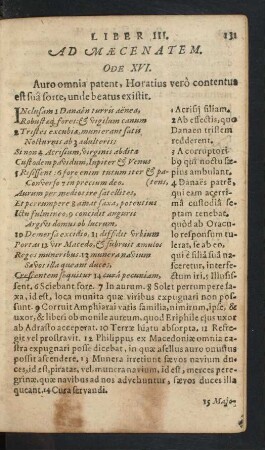 LIBER III. 131
AD MÆCENATEM.
ODE XVI.
Auro omnia patent, Horatius verò contentus
est suâ sorte, unde beatus existit.
INclusam 1 Danaën turris aënea,
Robustæq; fores: & vigilum canum
2 Tristes excubiæ, munierant satis
Nocturnis ab 3 adulteris:
Si non 4 Acrisium, virginis abditæ
Custodem pavidum, Iupiter & Venus
5 Risissent: 6 fore enim tutum iter & pa-
Converso in precium deo. tens,
Aurum per medios ire satellites,
Et perrumpere 8 amat saxa, potentius
Ictu fulmineo, 9 concidit auguris
Argivi domus ob lucrum.
10 Demersa exscidio, 11 diffidit Urbium
Portas 12 vir Macedo, & subruit æmulos
Reges muneribus. 13 munera navium
Sævos illaqueant duces.
Crescentem sequitur 14 cura pecuniam,
1 Acrisij filiam.
2 Ab effectis, quæ
Danaën tristem
redderent.
3 A corruptori-
bq quod noctu sæ-
pius ambulant.
4 Danaës patrẽ,
qui eam acerri-
mâ custodiâ de-
tinebat, eo quòd
quòd ab Oracu-
lo responsum tu-
lerat, se ab eo,
qui ex suâ filiâ
nasceretur, inter-
fectum iri, 5 Illusis-
sent. 6 Sciebant fore. 7 In aurum. 8 Solet perrumpere sa-
xa, id est, loca munita quæ viribus expugnari non pos-
sunt. 9 Corruit Amphiarai vatis familia, nimirum, ipse, &
uxor, & liberi ob monile aureum. quod Eriphile ejus uxor
ab Adrasto acceperat. 10 Terræ hiatu absorpta. 11 Refre-
git vel prostravit. 12 Philippus ex Macedoniæ omnia ca-
stra expugnari posse dicebat, in quæ asellus auro onustus
possit ascendere. 13 Munera irretiunt sævos navium du-
ces, id est, piratas, vel. munera navium, id est, merces pere-
grinæ quæ navibus ad nos advehuntur, sævos duces illa
queant. 14 Cura servandi.
15 Majo-